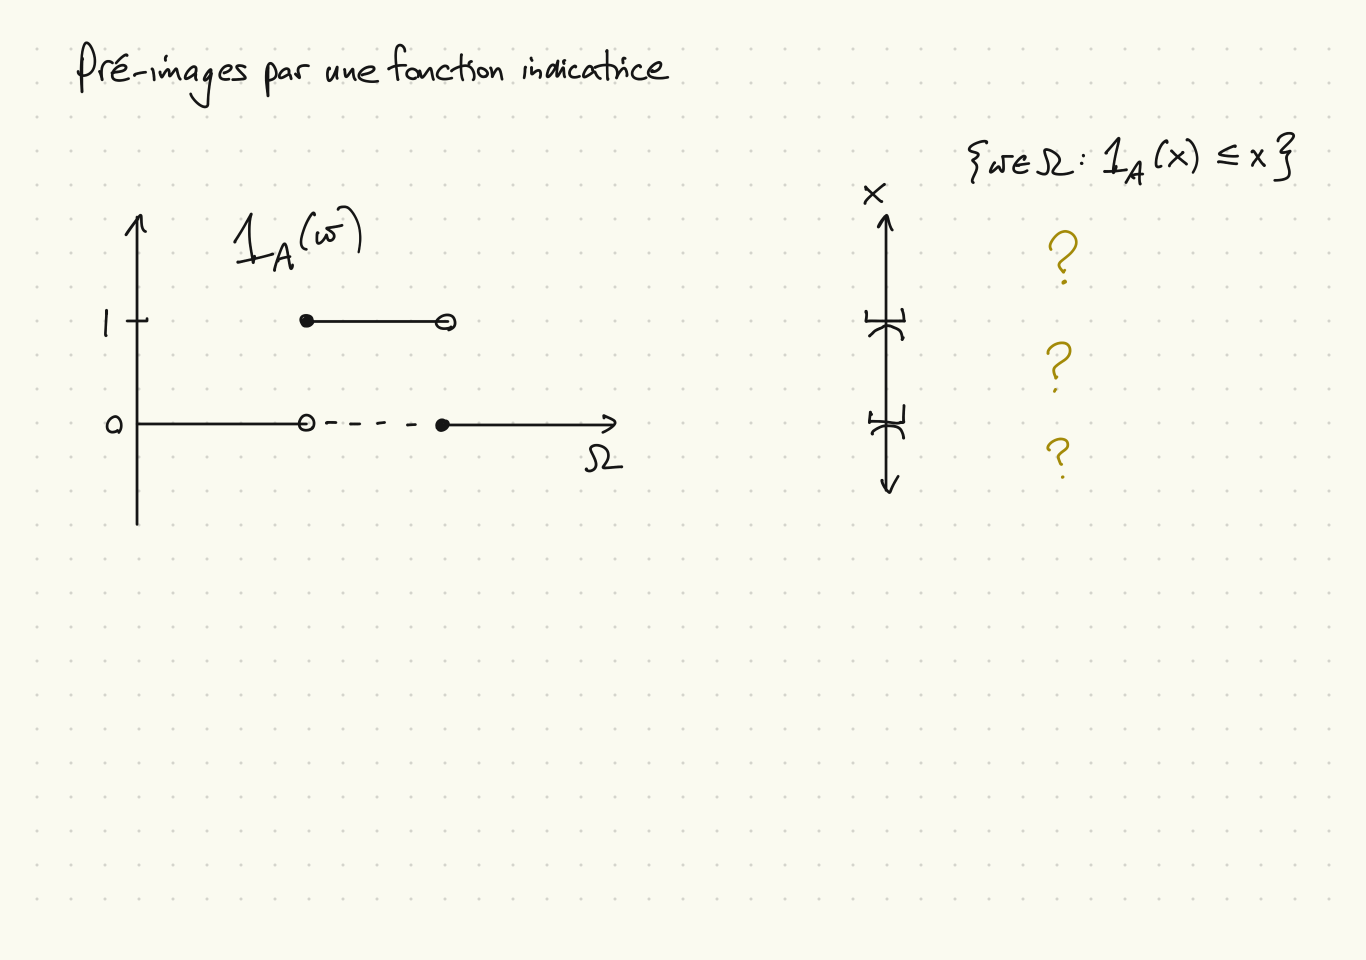 Pré-images par une fonction indicatrice
{ω ∈ Ω : 1_A(x) ≤ x}
x
1_A(ω)
?
1
?
0
Ω
?